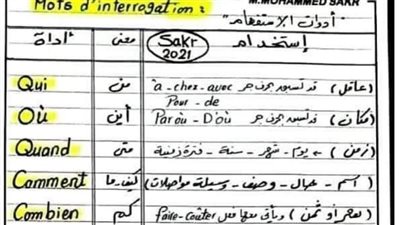 Mots d'interrogation : M.MOHAMMED SAKR
أدوات الاستفهام
أداة معنى Sakr 2021 إستخدام
Qui من (عاقل) قد تسبق بحرف جر à - chez - avec
Pour - de
Où أين (مكان) قد تسبق بحرف جر Par où - D'où
Quand متى (زمن) ← يوم - شهر - سنة - فترة زمنية
Comment كيف - ما (اسم - حال - وصف - وسيلة مواصلات)
Combien كم (العمر أو ثمن) ويأتى معها فعل faire - coûter